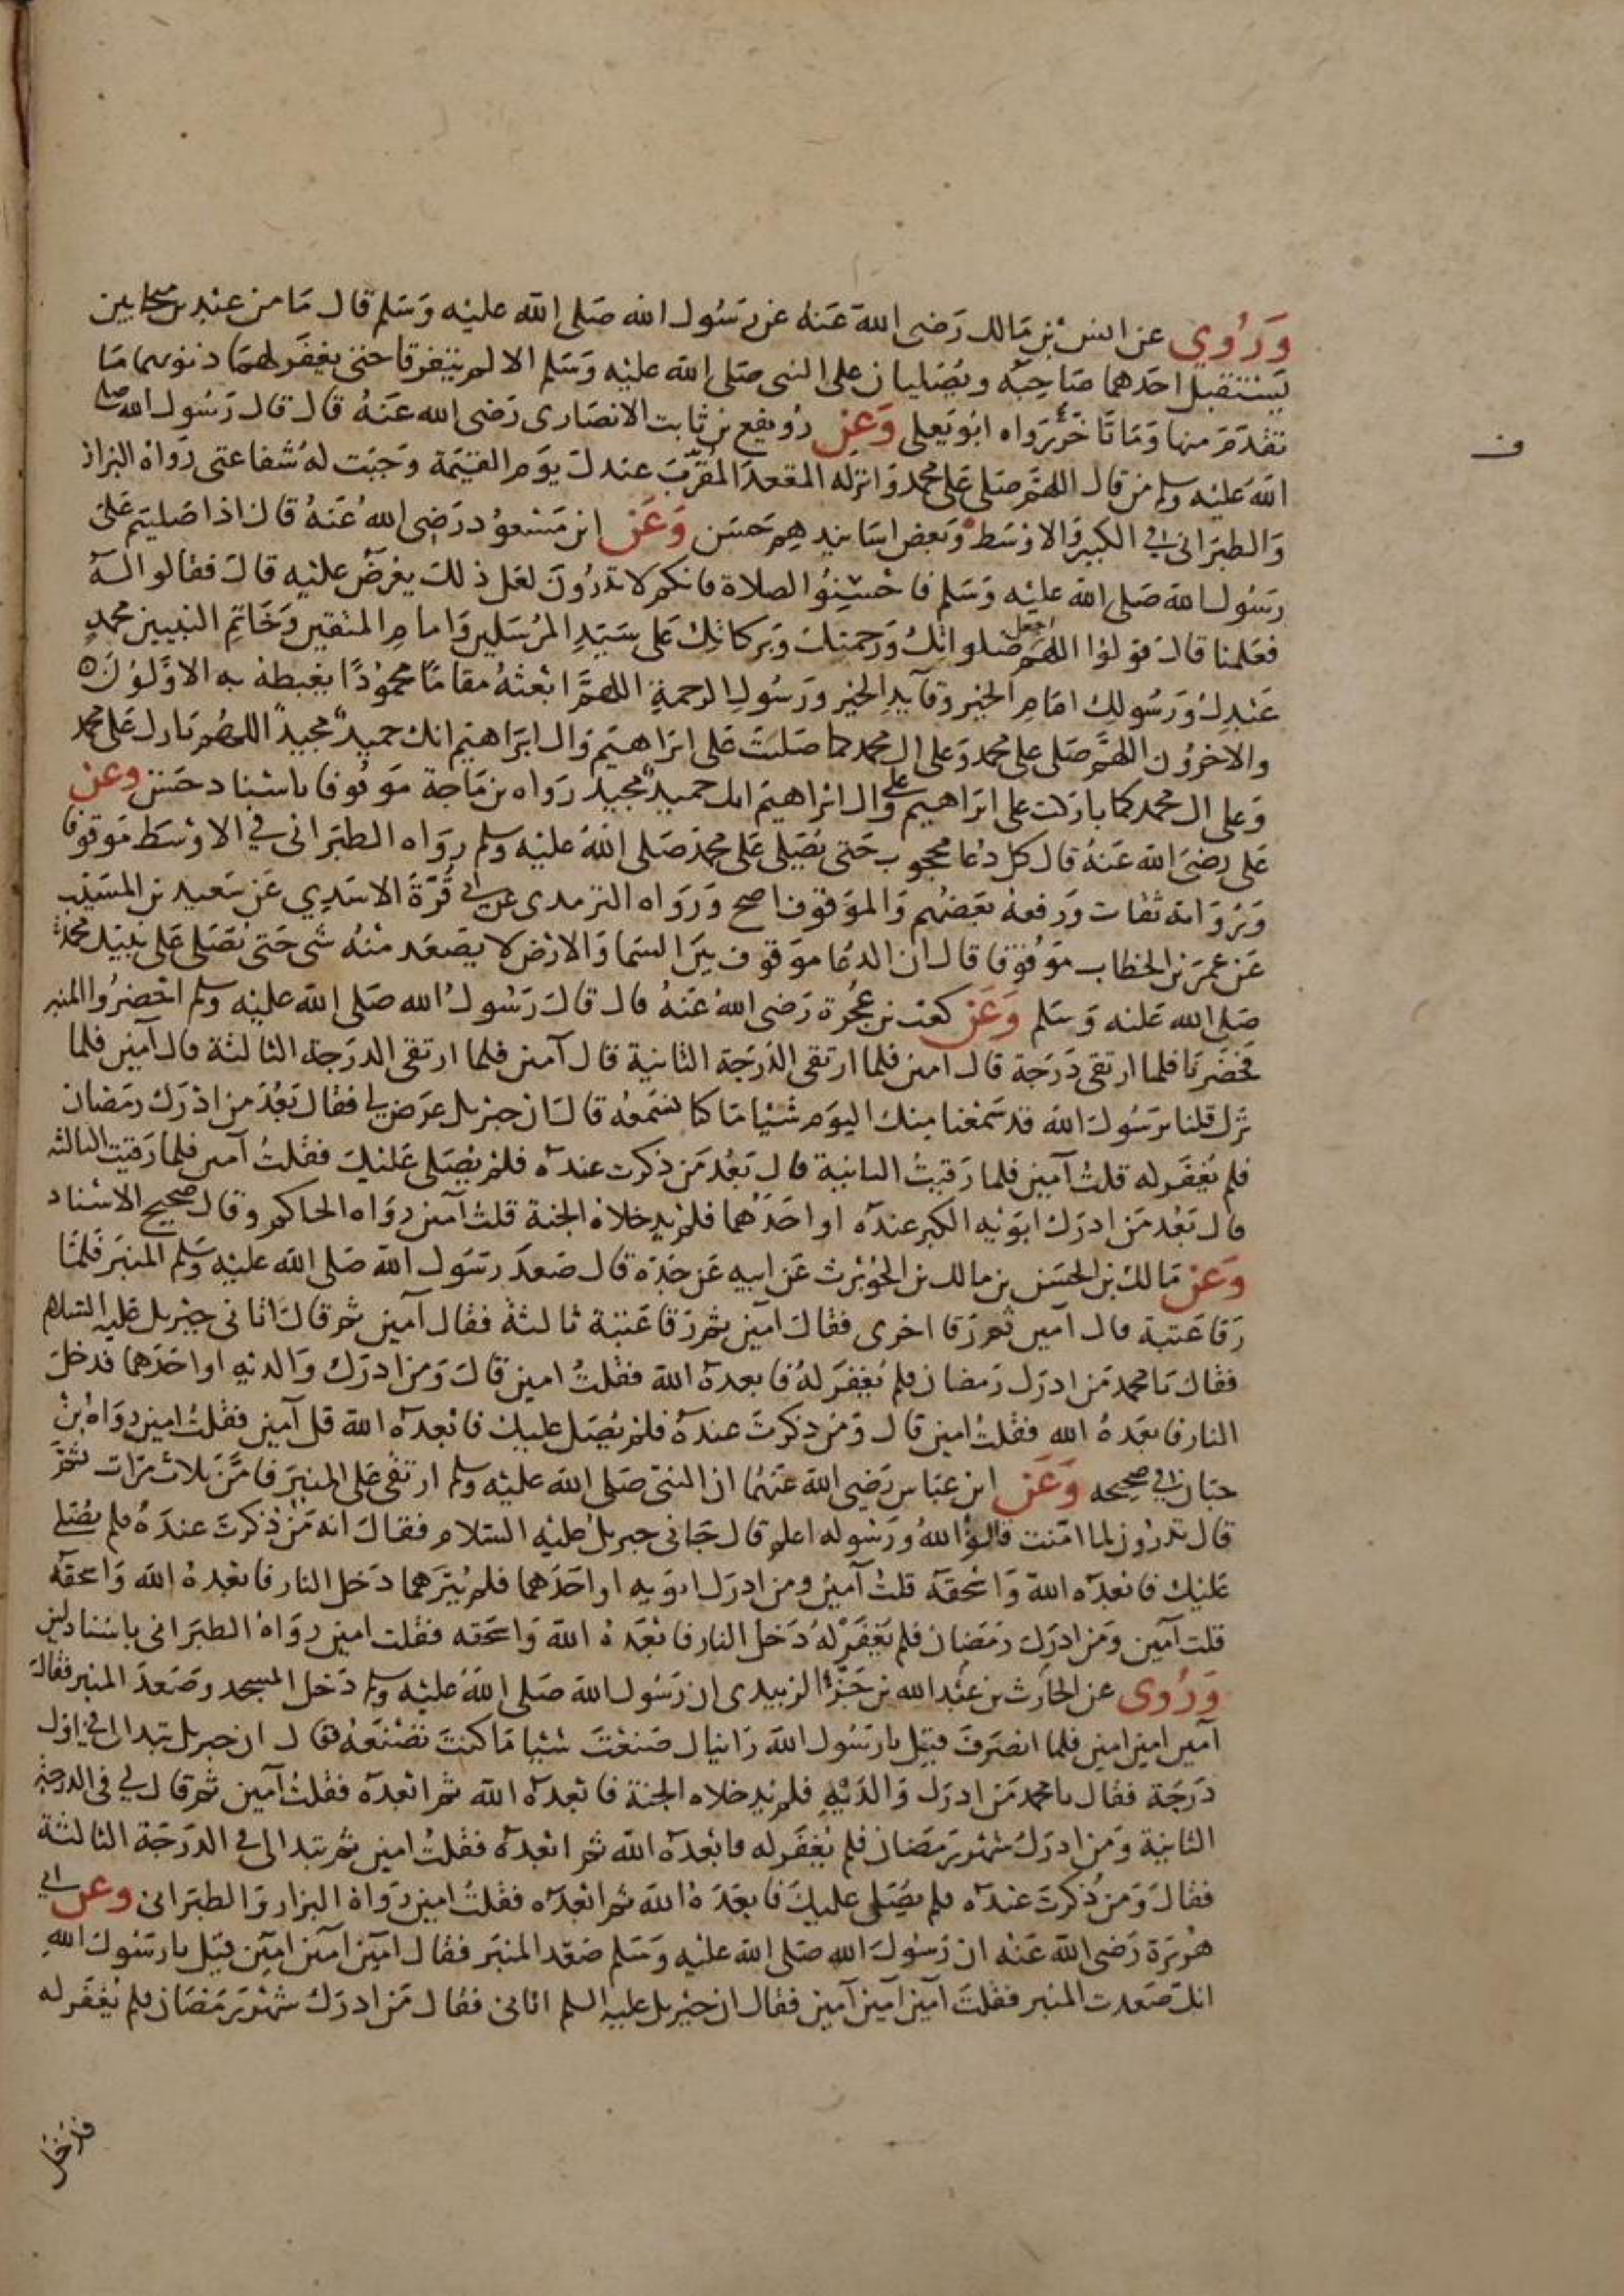 وَرُوِي عن انس بن مَالك رَضى الله عَنهُ عن رَسُول الله صَلى الله عليْه وَسَلم قال مَا من عبدين متحابين
يَستقبل احَدهما صَاحِبَه ويُصَليان على النبى صَلى الله عليْه وَسَلم الا لم يتفرقا حتى يغفَر لهمَا ذنوبهما مَا
تقدَمَ منها وَمَا تَأخَّرَ رَواه ابُو يَعلى وَعَن رُويفع بن ثابت الانصَارى رَضى الله عَنهُ قال قال رَسُول الله صلى
الله عَليْه وسلم من قال اللهمَّ صَلى عَلى محمد وَانزله المقعدَ المُقرَّبَ عندك يَوم القيٰمة وَجبَت لهُ شفاعتى رَوَاهُ البزار
وَالطبَرانى في الكبير وَالاوْسَط وَبَعض اسَانيدهم حَسَن وَعَن ابن مَسْعوُد رَضى اللهُ عَنهُ قال اذا صَليتم عَلى
رسُول الله صَلى الله عليْه وَسَلم فاحْسِنُوا الصلاة فانكم لا تدرُونَ لعَل ذلك يعرَضُ عليْه قال فقالوا له
فعَلمنا قال قولوُا اللهمَّ اجعل صَلواتكَ وَرَحمتك وَبَركاتكَ عَلى سَيّدِ المرُسَلين وَامامِ المتقين وَخَاتمِ النبيين محمدٍ
عَبْدِك وَرَسُولِكَ امَامِ الخير وقآيدِ الخير ورَسُولِ الرحمةِ اللهمَّ ابعَثهُ مقامًا محمُودًا يغبطهُ به الاوَّلوُنَ
والاخرُون اللهمَّ صَلى على محمد وَعلى ال محمد كما صَليتَ عَلى ابرَاهيم وَال ابرَاهيم انك حميدٌ مجيدٌ اللهُم بَارك عَلى محمد
وَعلى ال محمد كما بارَكت على ابرَاهيم وعلى ال ابرَاهيم انك حميدٌ مجيد رَواه بن مَاجة مَوقوفا باسناد حَسَن وعن
عَلى رضىَ الله عَنهُ قال كل دُعا محجوب حَتى يُصَلى عَلى محمدٍ صَلى اللهُ عَليْه وسلم رواه الطبَرانى في الاوْسَط مَوقوفا
وَرُوَاته ثقات وَرفعهُ بَعضهُم وَالموَقوُف اصح وَرَوَاه الترمدى عن ابي قُرَّةَ الاسَدِي عَن سَعيد بن المسَيّب
عَن عمَرَ بن الخطاب مَوقوُفا قال ان الدعَا موَقوف بَينَ السَما وَالارْض لا يَصْعَد مْنهُ شى حَتى تُصَلى عَلى نبيّك محمد
صَلى الله عَليْه وَسَلم وَعَن كعْب بن عُجْرة رَضى اللهُ عَنهُ قال قال رَسُولُ الله صَلى الله عليْه وسلم احْضرُوا المنبر
فحَضَرنا فلما ارتقى دَرَجة قال امين فلما ارتقى الدَرَجَة الثانية قال آمين فلما ارتقى الدرَجة الثالثة قال آمين فلما
نزل قلنا يَرَسُولَ الله قد سَمْعنا مِنك اليوَم شيْا مَا كنا نسْمَعُه قال ان جبْريل عرَضَ لي فقال بَعُدَ من ادْرَك رمَضان
فلم يُغفَر له قلتُ آمين فلما رَقيتُ الثانية قال بَعُدَ مَن ذكرت عندَه فلم يُصَلى عَليْك فقلتُ آمين فلما رَقيت الثالثة
قال بَعُد مَن ادرَك ابوَيْه الكبر عندَه او احَدَهُما فلم يدخلاهُ الجنة قلت آمين رواه الحاكم وقال صحيح الاسناد
وَعَن مَالك بن الحسَن بن مالك بن الحُوَيْرث عَن ابيه عَن جَده قال صَعدَ رسَوُل الله صَلى الله عليْه وَسَلم المنبَر فلمَا
رَقا عَتبة قال آمين ثم رَقا اخرى فقال آمين ثم رَقا عَتبة ثالثة فقال آمين ثم قال اتانى جبْريل عَليه السَلام
فقال يَا محمد مَن ادرَك رَمضان فلم يُغفَر لهُ فابعدهُ الله فقلتُ امين قال وَمن ادرَك وَالديْه او احَدَهما فدخلَ
النار فابعَدهُ الله فقلتُ امين قال وَمن ذكرتَ عندَهُ فلم يُصَل عليكَ فابْعدَهُ الله قل آمين فقلتُ امين رواهُ بن
حبَان في صحيحه وَعَن ابن عبَاس رَضى الله عَنهُما ان النبى صَلى الله عليْه وسلم ارتقى عَلى المنبَر فامَّن ثلاث مَرَات ثم
قال تدرُون لما امَّنت قالوُا اللهُ ورَسُوله اعلم قال جَانى جبريلُ عليْه السَلام فقال انه مَن ذكرتَ عندَهُ فلم يُصَلى
عَليْك فابعدَه اللهُ وَاسْحقَه قلتُ آمين ومن ادرَك ابوَيه او احَدَهما فلم يَبَرهما دَخل النار فابعْدهُ الله وَاسحقه
قلت آمين وَمَن ادرَك رَمَضان فلم يَغفَرْ لهُ دَخل النار فابعَدهُ الله وَاسحَقه فقلت امين رواهُ الطبَرانى باسْناد لين
وَرُوى عن الحَارث بن عبْد الله بن جَزْءٍ الزبيدى ان رَسُول الله صَلى اللهُ عَليْه وسلم دَخل المسجد وصَعدَ المنبر فقال
آمين امين امين فلما انصَرفَ قيل يا رَسُول الله رَايناك صَنعْتَ شيْا مَا كنتَ تصْنَعُه قال ان جبريل تبدا لى في اوَل
دَرَجَة فقال يا محمد مَن ادرَك وَالدَيْهِ فلم يدخلاه الجنة فابعَدهُ الله ثم ابعدَه فقلتُ آمين ثم قال لي في الدرجة
الثانية وَمن ادرَكَ شهْر رَمَضان فلم يُغفَر له فابْعدَه الله ثم ابْعدَه فقلتُ امين ثم تبدا لى في الدرَجَة الثالثة
فقال وَمن ذُكرتَ عندَه فلم يُصَلى عليكَ فابعَدَهُ الله ثم ابعَدَه فقلتُ امين رَوَاهُ البزار وَالطبَرانى وعن ابي
هُرَيرَة رَضى الله عَنه ان رَسُولَ الله صَلى الله عليْه وَسَلم صَعَد المنبَر فقال امين امين امين قيَل يا رَسُولَ اللهِ
انك صَعدت المنبر فقلتَ آمين آمين آمين فقال ان جبْريل عليه السلم اتانى فقال مَن ادرَك شهْر رَمَضان فلم يُغفَر له
فدخل